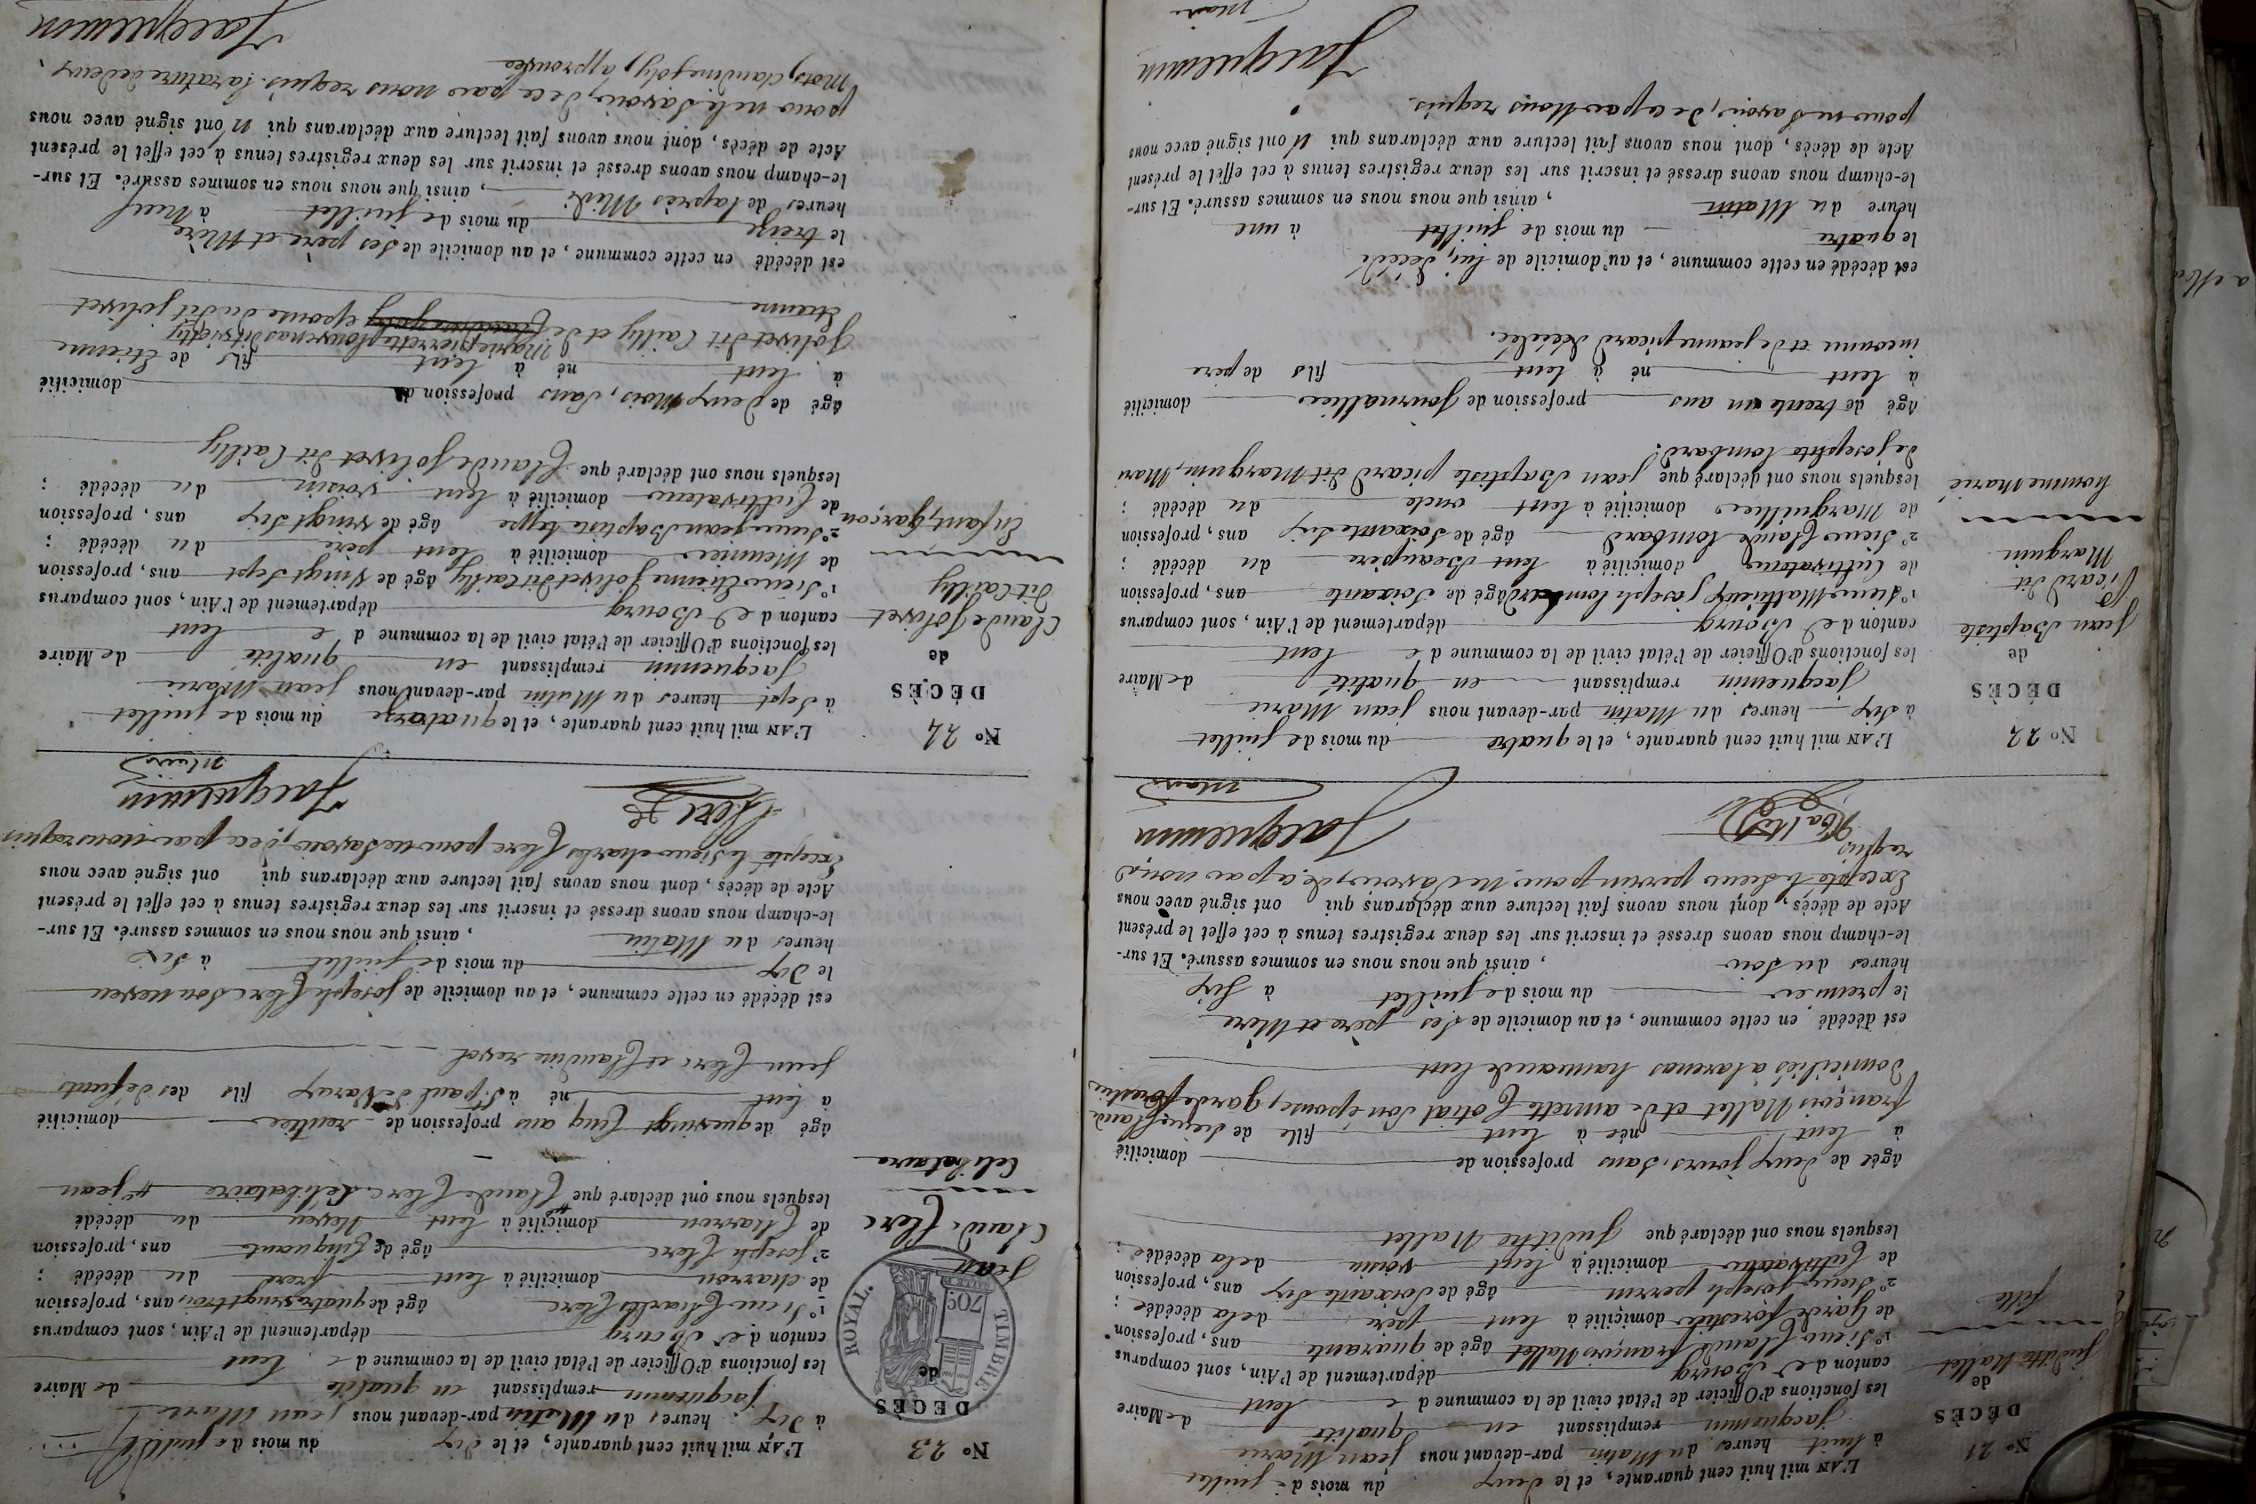 No 21
DÉCÈS
de
Juditte Mallet
fille
L'AN mil huit cent quarante, et le deux du mois de juillet
à huit heures du Matin par-devant nous jean Marie
jacquemin remplissant en qualité de Maire
les fonctions d'Officier de l'état civil de la commune de lent
canton de Bourg département de l'Ain, sont comparus
1º Sieur Claude françois Mallet âgé de quarante ans, profession
de Garde forestier domicilié à lent père de la décédée ;
2º Sieur joseph perrin âgé de soixante dix ans, profession
de Cultivateur domicilié à lent voisin de la décédée ;
lesquels nous ont déclaré que Juditte Mallet
âgée de deux jours, sans profession de domicilié
à lent née à lent fille de sieur Claude
françois Mallet et de annette Cotial son épouse, garde forestier
domiciliés à larenas hameau de lent
est décédée en cette commune, et au domicile de ses père et Mère
le premier du mois de juillet à six
heures du soir, ainsi que nous nous en sommes assuré. Et sur-
le-champ nous avons dressé et inscrit sur les deux registres tenus à cet effet le présent
Acte de décès, dont nous avons fait lecture aux déclarans qui ont signé avec nous
Excepté le sieur perrin pour ne savoir, de ce par nous
requis
Jacquemin
Maire
No 22
DÉCÈS
de
Jean Baptiste
Picard dit
Marguin
homme Marié
L'AN mil huit cent quarante, et le quatre du mois de juillet
à six heures du Matin par-devant nous jean Marie
jacquemin remplissant en qualité de Maire
les fonctions d'Officier de l'état civil de la commune de lent
canton de Bourg département de l'Ain, sont comparus
1º Sieur Matthieu joseph lombard âgé de soixante ans, profession
de Cultivateur domicilié à lent Beaupère du décédé ;
2º Sieur Claude lombard âgé de soixante six ans, profession
de Marguillier domicilié à lent oncle du décédé ;
lesquels nous ont déclaré que jean Baptiste picard dit Marguin, Mari
de josephte lombard.
âgé de trente un ans profession de journallier domicilié
à lent né à lent fils de père
inconnu et de jeanne picard décédée.
est décédé en cette commune, et au domicile de lui, décédé
le quatre du mois de juillet à une
heure du Matin, ainsi que nous nous en sommes assuré. Et sur-
le-champ nous avons dressé et inscrit sur les deux registres tenus à cet effet le présent
Acte de décès, dont nous avons fait lecture aux déclarans qui n'ont signé avec nous
pour ne savoir, de ce par Nous requis.
Jacquemin
Maire
No 23
DÉCÈS
de
Jean
Claude Clerc
Celibataire
TIMBRE ROYAL.
70c
L'AN mil huit cent quarante, et le dix du mois de juillet
à dix heures du Matin par-devant nous jean Marie
jacquemin remplissant en qualité de Maire
les fonctions d'Officier de l'état civil de la commune de lent
canton de Bourg département de l'Ain, sont comparus
1º Sieur Charles Clerc âgé de quatre vingt trois ans, profession
de charron domicilié à lent frère du décédé ;
2º joseph Clerc âgé de Cinquante ans, profession
de Charron domicilié à lent Neveu du décédé
lesquels nous ont déclaré que Claude Clerc Celibataire jean
âgé de quevingt Cinq ans profession de rentier domicilié
à lent né à St. paul de Varax fils des défunts
jean Clerc et Claudine revol
est décédé en cette commune, et au domicile de joseph Clerc son neveu
le dix du mois de juillet à six
heures du Matin, ainsi que nous nous en sommes assuré. Et sur-
le-champ nous avons dressé et inscrit sur les deux registres tenus à cet effet le présent
Acte de décès, dont nous avons fait lecture aux déclarans qui ont signé avec nous
Excepté le Sieur charles Clerc pour ne savoir, de ce par nous requis
Clerc
Jacquemin
Maire
No 24
DÉCÈS
de
Claude Jolivet
dit Cailly
Enfant, garçon
L'AN mil huit cent quarante, et le quatorze du mois de juillet
à sept heures du Matin par-devant nous jean Marie
jacquemin remplissant en qualité de Maire
les fonctions d'Officier de l'état civil de la commune de lent
canton de Bourg département de l'Ain, sont comparus
1º Sieur Etienne jolivet dit Cailly âgé de vingt sept ans, profession
de Meunier domicilié à lent père du décédé ;
2º Sieur jean Baptiste teppe âgé de vingt six ans, profession
de Cultivateur domicilié à lent voisin du décédé ;
lesquels nous ont déclaré que Claude jolivet dit Cailly
âgé de deux Mois, sans profession de domicilié
à lent né à lent fils de Etienne
Jolivet dit Cailly et de Claudine joly épouse du dit jolivet
Etienne
est décédé en cette commune, et au domicile de ses père et Mère
le treize du mois de juillet à Neuf
heures de l'après Midi, ainsi que nous nous en sommes assuré. Et sur-
le-champ nous avons dressé et inscrit sur les deux registres tenus à cet effet le présent
Acte de décès, dont nous avons fait lecture aux déclarans qui n'ont signé avec nous
pour ne le savoir, de ce par nous requis. la rature de deux
Mots, Claudine joly, approuvée
Jacquemin